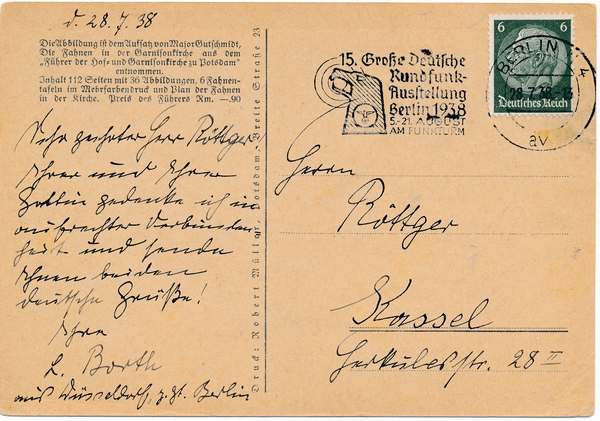 d. 28. 7. 38
Die Abbildung ist dem Aufsatz von Major Gutschmidt,
Die Fahnen in der Garnisonkirche aus dem
"Führer der Hof= und Garnisonkirche zu Potsdam"
entnommen.
Inhalt 112 Seiten mit 36 Abbildungen, 6 Fahnen-
tafeln im Mehrfarbendruck und Plan der Fahnen
in der Kirche. Preis des Führers Rm. —.90
Sehr geehrter Herr Röttger
Ihrer und Ihrer
Gattin gedenke ich in
aufrechter Verbunden
heit und sende
Ihnen beiden
deutsche Grüße!
Ihre
L. Borth
aus Düsseldorf, z. Zt. Berlin
Druck: Robert Müller, Potsdam, Breite Straße 23
15. Große Deutsche
Rundfunk-
Ausstellung
Berlin 1938
5.-21. AUGUST
AM FUNKTURM
6 6
Deutsches Reich
BERLIN
28.7.38.-13
av
Herrn
Röttger
Kassel
Herkulesstr. 28 II